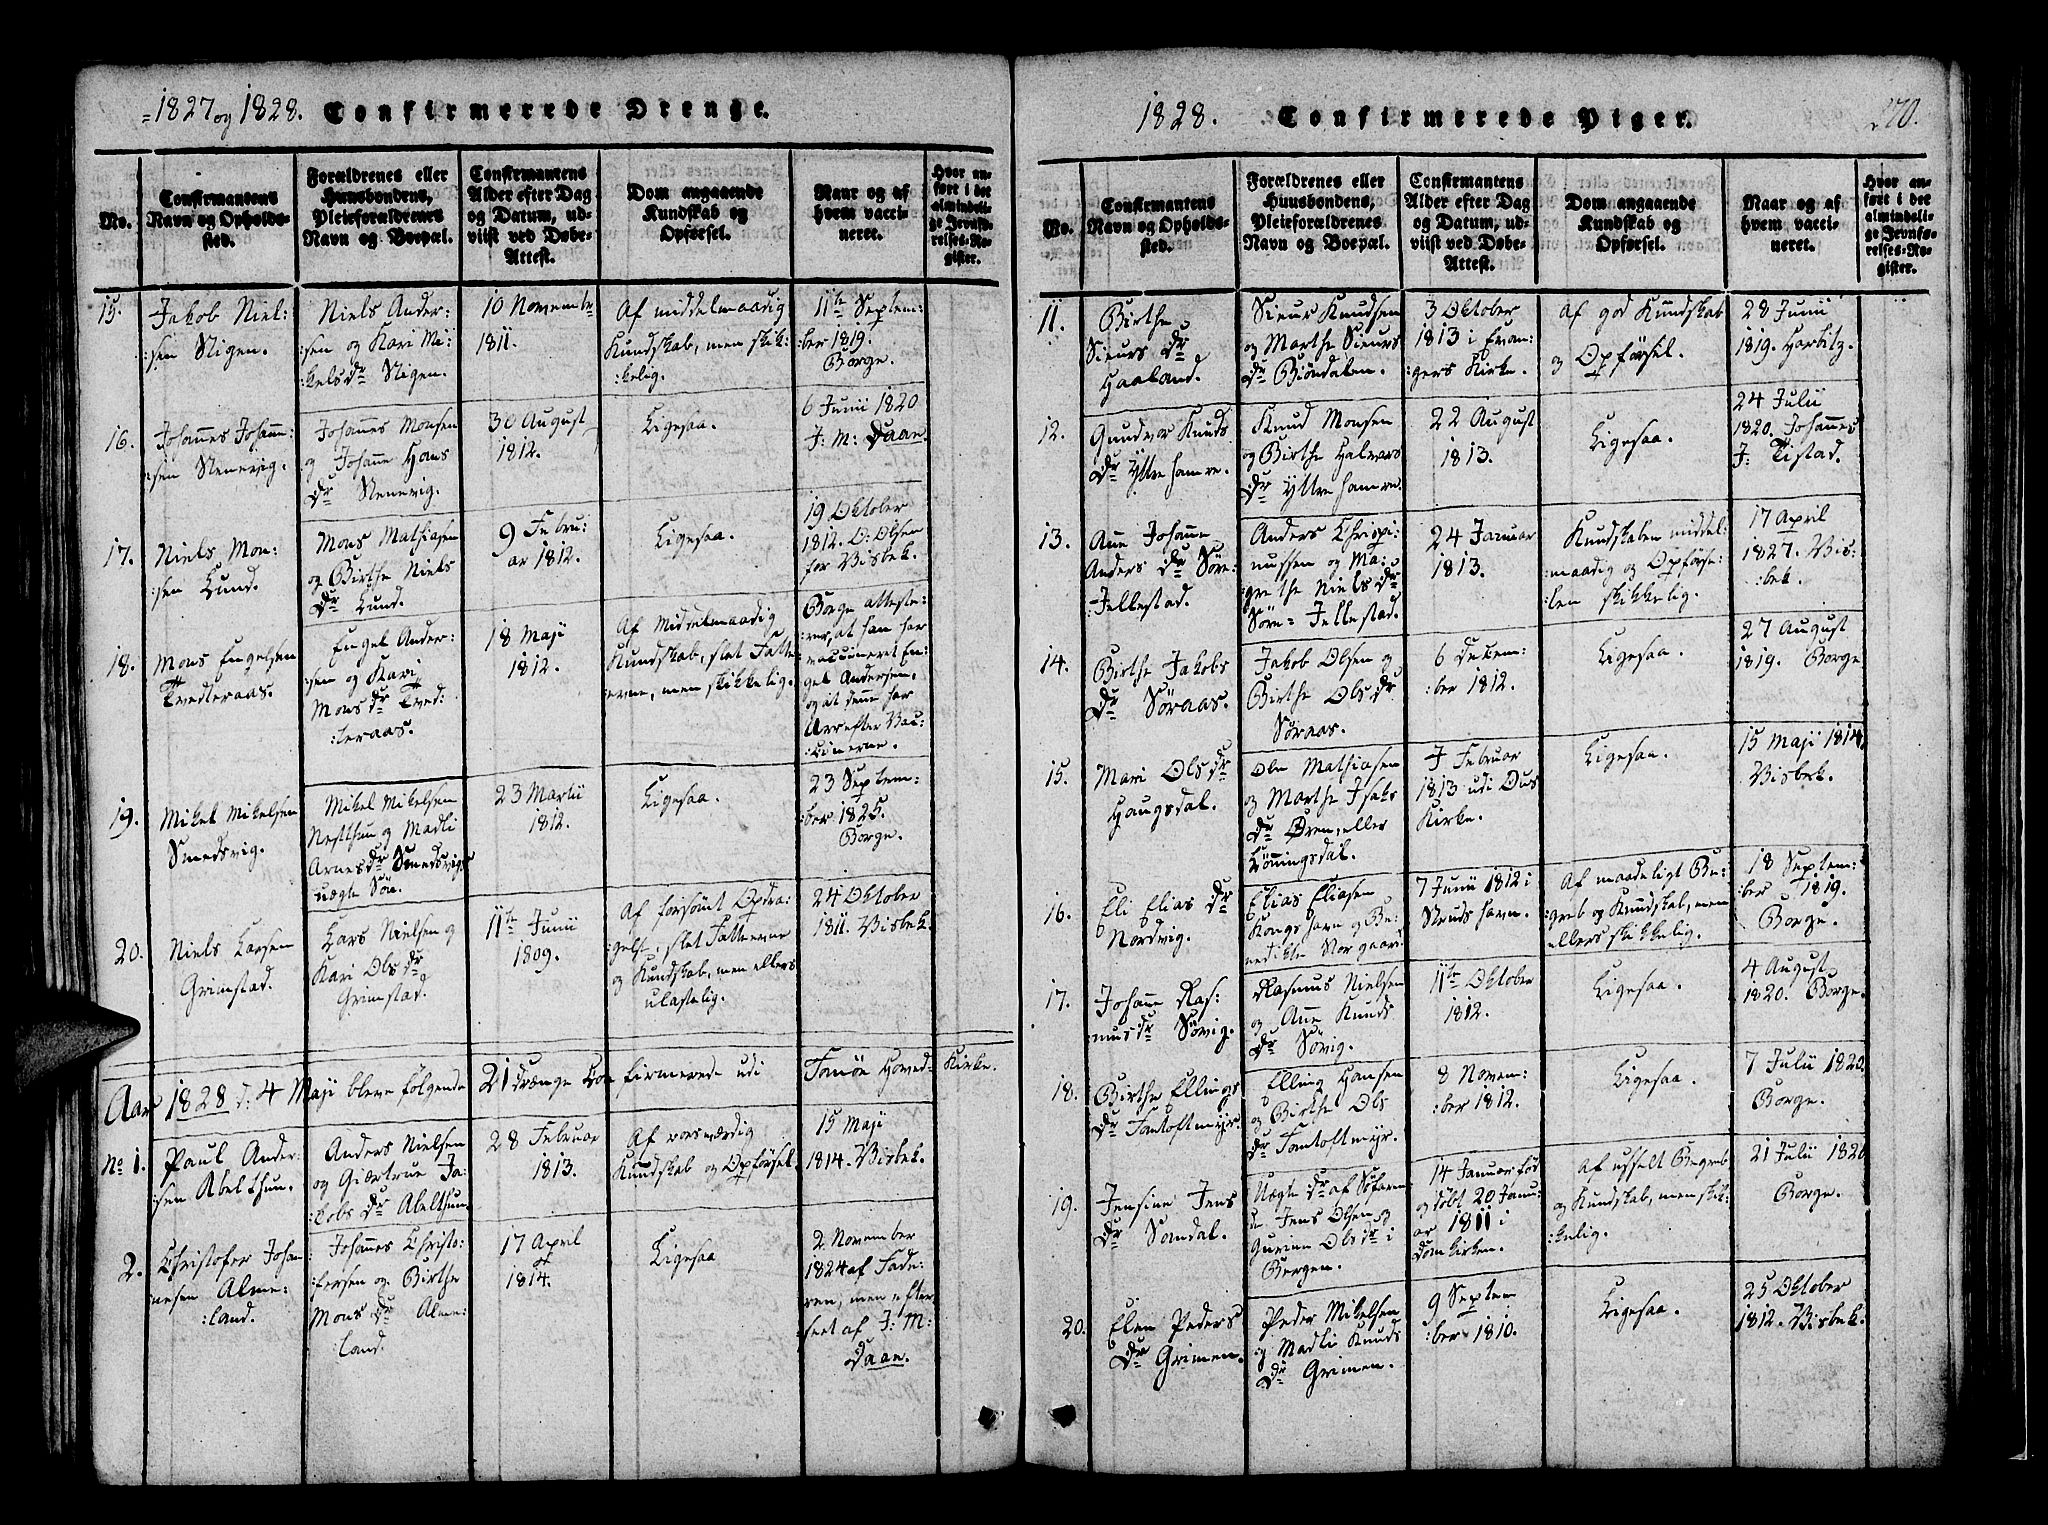 =1827 og 1828. Confirmerede Drenge.
No.
Confirmantens
Navn og Opholds-
sted.
Forældrenes eller
Huusbondens,
Pleieforældrenes
Navn og Boepæl.
Confirmantens
Alder efter Dag
og Datum, ud-
viist ved Døbe-
Attest.
Dom angaaende
Kundskab og
Opførsel.
Naar og af
hvem vacci-
neret.
Hvor an-
ført i det
almindeli-
ge Jevnfø-
relses-Re-
gister.
15.
Jakob Niel:
:sen Stigen.
Niels Ander-
:sen og Kari Mi:
:kelsdr Stigen.
10 Novembr
1811.
Af middelmaadig
Kundskab, men skik:
:kelig.
11te Septem:
:ber 1819.
Borge.
16.
Johannes Johann:
:sen Stenevig.
Johannes Monsen
og Johanne Hans
Dr Stenevig.
30 August
1812.
Ligesaa.
6 Junii 1820
J: M: Daae.
17.
Niels Mon:
:sen Lund.
Mons Mathiasen
og Birthe Niels
Dr Lund.
9 Febru:
ar 1812.
Ligesaa.
19 Oktober
1812. O: Olsen
for Visbek.
18.
Mons Engelsen
Tvedteraas.
Engel Ander:
:sen og Kari
Mons dr Tved:
:teraas.
18 Maji
1812.
Af Middelmaadig
Kundskab, slet Fatte
:evne, men skikkelig.
Borge atteste:
:rer, at han har
vaccineret En:
gel Andersen,
og at denne har
Arr efter Vac:
:cinerne.
19.
Mikel Mikelsen
Smedsvig.
Mikel Mikelsen
Nestthun og Madli
Arnesdr Smedsvigs
uægte Søn.
23 Martii
1812.
Ligesaa.
23 Septem-
:ber 1825.
Borge.
20.
Niels Larsen
Grimstad.
Lars Nielsen og
Kari Ols dr
Grimstad.
11te Junii
1809.
Af forsømt Opdra:
:gelse, slet Fatteevne
og Kundskab, men ellers
ulastelig.
24 Oktober
1811. Visbek.
Aar 1828 d: 4 Maji bleve følgende 21 Drænge Con firmerede udi Fanøe Hoved-Kirke.
No 1.
Paul Ander-
:sen Abelthun.
Anders Nielsen
og Giærtrue Ja:
:kobs Dr Abelthun
28 Februar
1813.
Af roesværdig
Kundskab og Opførsel
15 Maji
1814. Visbek.
2.
Christofer Johan
:nesen Alme:
:land.
Johannes Christo:
:fersen og Birthe
Mons dr Alme:
:land.
17 April
1814.
Ligesaa
2 November
1824 af Fade:
:ren, men efter
:seet af J: M:
Daae.
1828. Confirmerede Piger.
270.
No.
Confirmantens
Navn og Opholds-
sted.
Forældrenes eller
Huusbondens,
Pleieforældrenes
Navn og Boepæl.
Confirmantens
Alder efter Dag
og Datum, ud-
viist ved Døbe-
Attest.
Dom angaaende
Kundskab og
Opførsel.
Naar og af
hvem vacci-
neret.
Hvor an-
ført i det
almindeli-
ge Jevnfø-
relses-Re-
gister.
11.
Birthe
Sieurs Dr
Haaland.
Sieur Knudsen
og Marthe Sieurs
Dr Biøndalen.
3 Oktober
1813 i Evan:
:gers Kirke.
Af god Kundskab
og Opførsel.
28 Junii
1819. Harbitz.
12.
Gundvor Knuds
Dr Yttre hamre.
Knud Monsen
og Birthe Halvors
Dr Yttre hamre.
22 August
1813.
Ligesaa.
24 Julii
1820. Johannes
J: Tistad.
13.
Ane Johanne
Anders Dr Søre:
:Jellestad.
Anders Chrispi:
nussen og Ma:
grethe Niels Dr
Søre= Jellestad.
24 Januar
1813.
Kundskaben middel:
:maadig og Opførse:
:len skikkelig.
17 April
1827. Vis:
:bek.
14.
Birthe Jakobs
Dr Søraas.
Jakob Olsen og
Birthe Ols Dr
Søraas.
6 Decem:
:ber 1812.
Ligesaa.
27 August
1819. Borge
15.
Mari Ols Dr
Haugsdal.
Ole Mathiasen
og Marthe Isaks
Dr Øren, eller
Lønningsdal.
7 Februar
1813 udi Ous
Kirke.
Ligesaa.
15 Maji 1814,
Visbek.
16.
Eli Elias Dr
Nordvig.
Elias Eliasen
Kongshavn og Be:
:nedikte Norgaar
7 Junii 1812 i
Strudshavn.
Af maadeligt Be:
:greb og Kundskab, men
ellers skikkelig.
18 Septem:
:ber 1819.
Borge.
17.
Johanne Ras:
:mus dr Søvig.
Rasmus Nielsen
og Ane Knuds
Dr Søvig.
11te Oktober
1812.
Ligesaa.
4 August
1820. Borge.
18.
Birthe Ellings
Dr Fantoftmyr.
Elling Hansen
og Birthe Ols
Dr Fantoftmyr.
8 Novem:
:ber 1812.
Ligesaa.
7 Julii 1820.
Borge.
19.
Jensine Jens
Dr Sandal.
Uægte Dr af Søfaren
de Jens Olsen og
Gurine Ols dr i
Bergen.
14 Januar fød
og døbt 20 Janu:
ar 1811 i
Domkirken.
Af usselt Begreb
og Kundskab, men skik:
:kelig.
21 Julii 1820
Borge.
20.
Elen Peders
Dr Grimen.
Peder Mikelsen
og Madli Knuds
Dr Grimen.
9 Septem
:ber 1810.
Ligesaa.
25 Oktober
1812. Visbek.